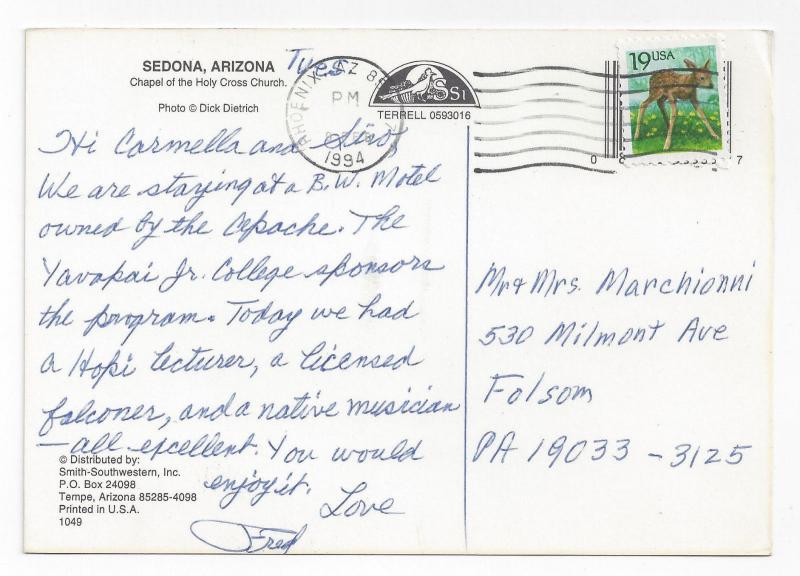 SEDONA, ARIZONA
Chapel of the Holy Cross Church.
Photo © Dick Dietrich
Tues
PHOENIX, AZ
PM
FEB
1994
SSI
TERRELL 0593016
19 USA
0 7
Hi Carmella and Siro
We are staying at a B.W. Motel
owned by the Apache. The
Yavapai Jr. College sponsors
the program. Today we had
a Hopi lecturer, a licensed
falconer, and a native musician
—all excellent. You would
enjoy it.
Love
Fred
Mr & Mrs. Marchionni
530 Milmont Ave
Folsom
PA 19033-3125
© Distributed by:
Smith-Southwestern, Inc.
P.O. Box 24098
Tempe, Arizona 85285-4098
Printed in U.S.A.
1049